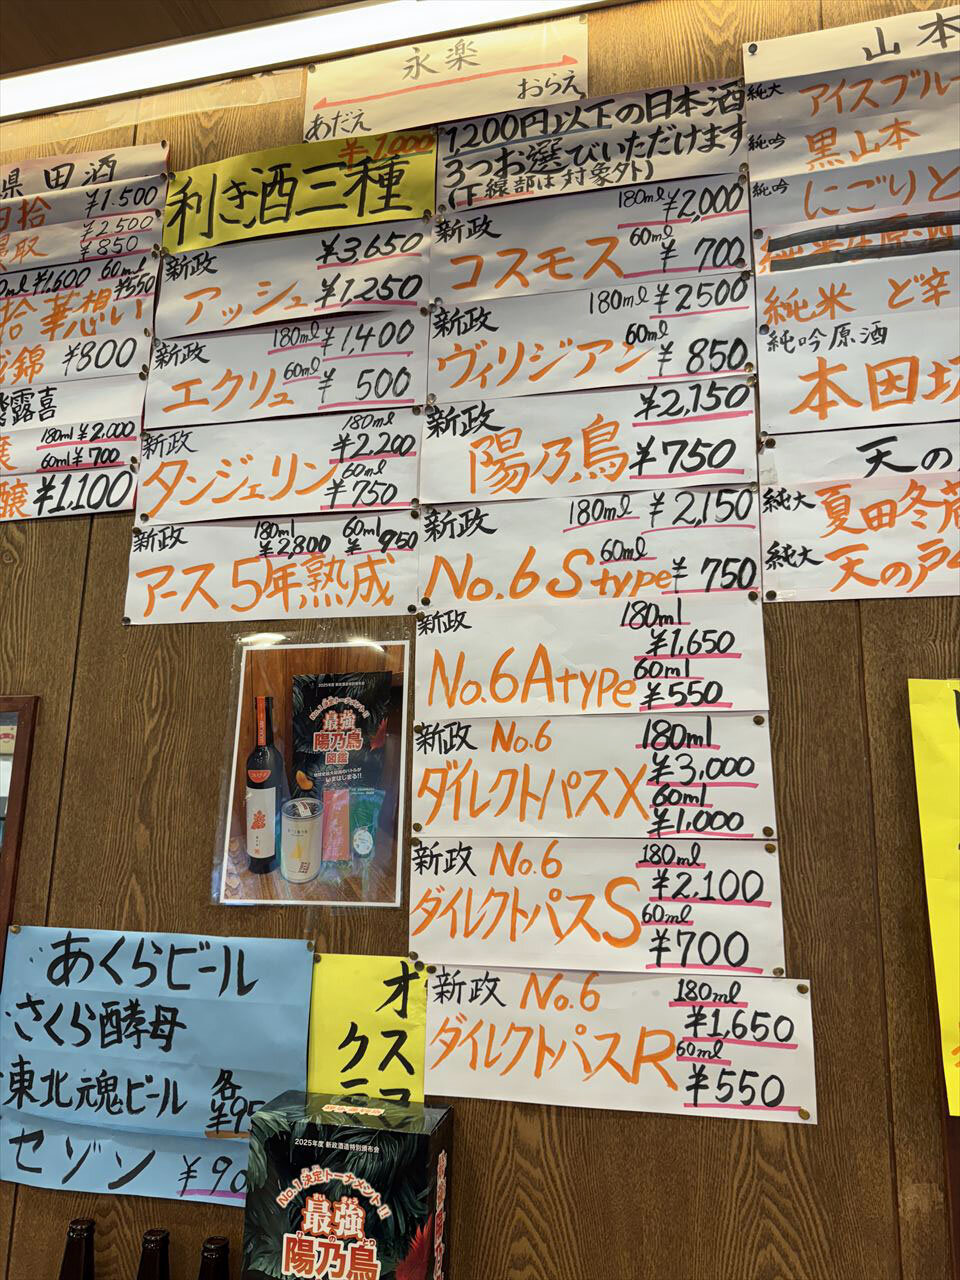 永楽
あだえ
おらえ
県田酒
拾 ¥1.500
取 ¥2500
¥850
¥1,600 60ml ¥550
拾 華想い
錦 ¥800
露喜
180ml ¥2,000
60ml ¥700
醸 ¥1,100
¥1,000
利き酒三種
1,200円以下の日本酒
3つお選びいただけます
(下線部は対象外)
新政
アッシュ
¥3,650
¥1,250
新政
エクリュ
180ml ¥1,400
60ml ¥500
新政
タンジェリン
180ml
¥2,200
60ml
¥750
新政
180ml
¥2,800
60ml
¥950
アース5年熟成
新政
コスモス
180ml ¥2,000
60ml
¥700
新政
ヴィリジアン
180ml ¥2500
60ml
¥850
新政
陽乃鳥
¥2,150
¥750
新政
180ml ¥2,150
No.6 S type
60ml
¥750
新政
No.6 A type
180ml
¥1,650
60ml
¥550
新政 No.6
ダイレクトパスX
180ml
¥3,000
60ml
¥1,000
新政 No.6
ダイレクトパスS
180ml
¥2.100
60ml
¥700
新政 No.6
ダイレクトパスR
180ml
¥1,650
60ml
¥550
山本
純大 アイスブルー
純吟 黒山本
純吟 にごりと
純米 ど辛
純吟原酒
本因坊
天の
純大 夏田冬蔵
純大 天の戸
2025年度 新政酒造特別頒布会
No.1決定トーナメント!!
最強
陽乃鳥
図鑑
あくらビール
さくら酵母
東北魂ビール
各
¥95
セゾン ¥90
オ
クス
ラマ
2025年度 新政酒造特別頒布会
No.1決定トーナメント!!
最強
陽乃鳥